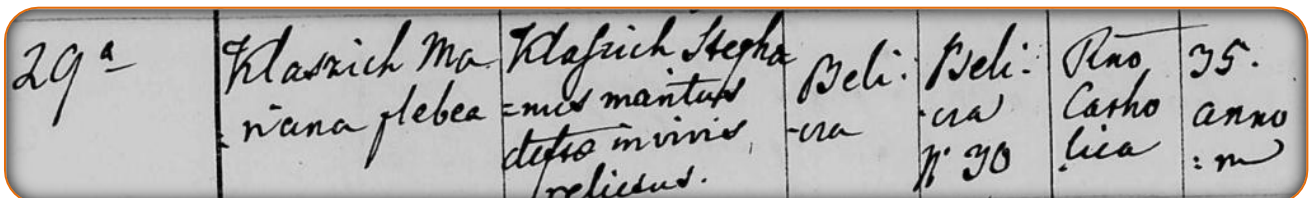 29a
Klasnich Ma
riana plebea
Klasnich Stepha
=nus maritus
in vivis
relictus.
Beli-
-cra
Beli-
-cra
No 30
Rno
Catho
lica
35.
anno
:m